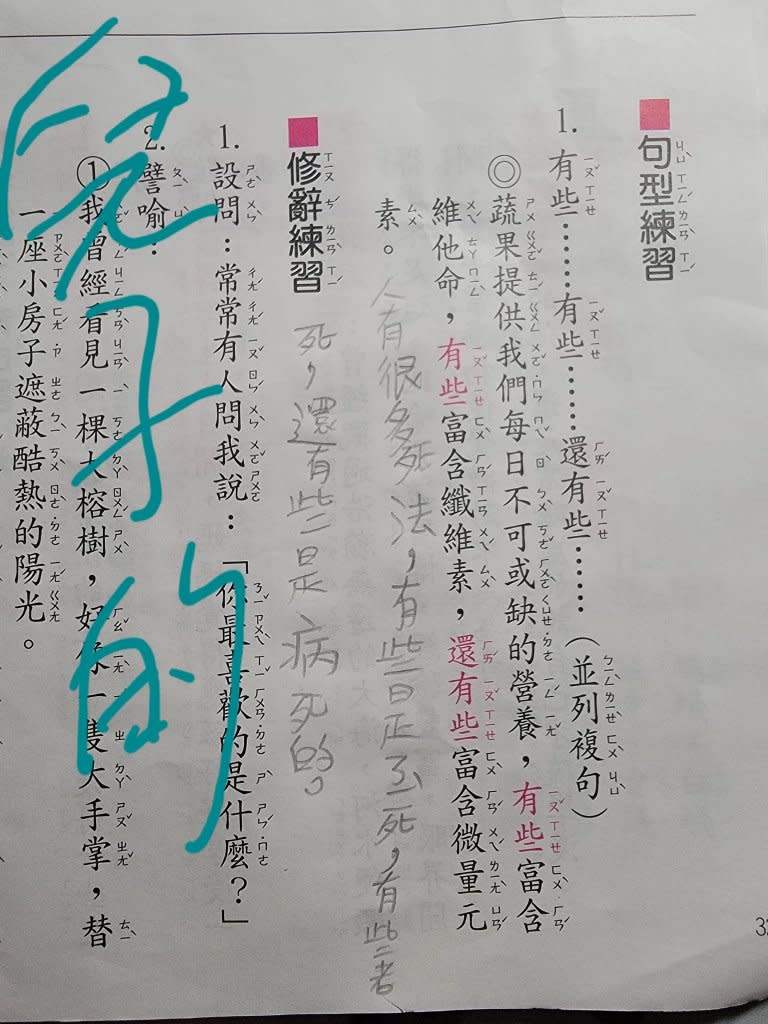 句型練習
1. 有些……有些……還有些……（並列複句）
◎蔬果提供我們每日不可或缺的營養，有些富含
維他命，有些富含纖維素，還有些富含微量元
素。
人有很多死法，有些是死，有些老
死，還有些是病死的。
修辭練習
1. 設問：常常有人問我說：「你最喜歡的是什麼？」
2. 譬喻：
①我曾經看見一棵大榕樹，好像一隻大手掌，替
一座小房子遮蔽酷熱的陽光。
兒子的